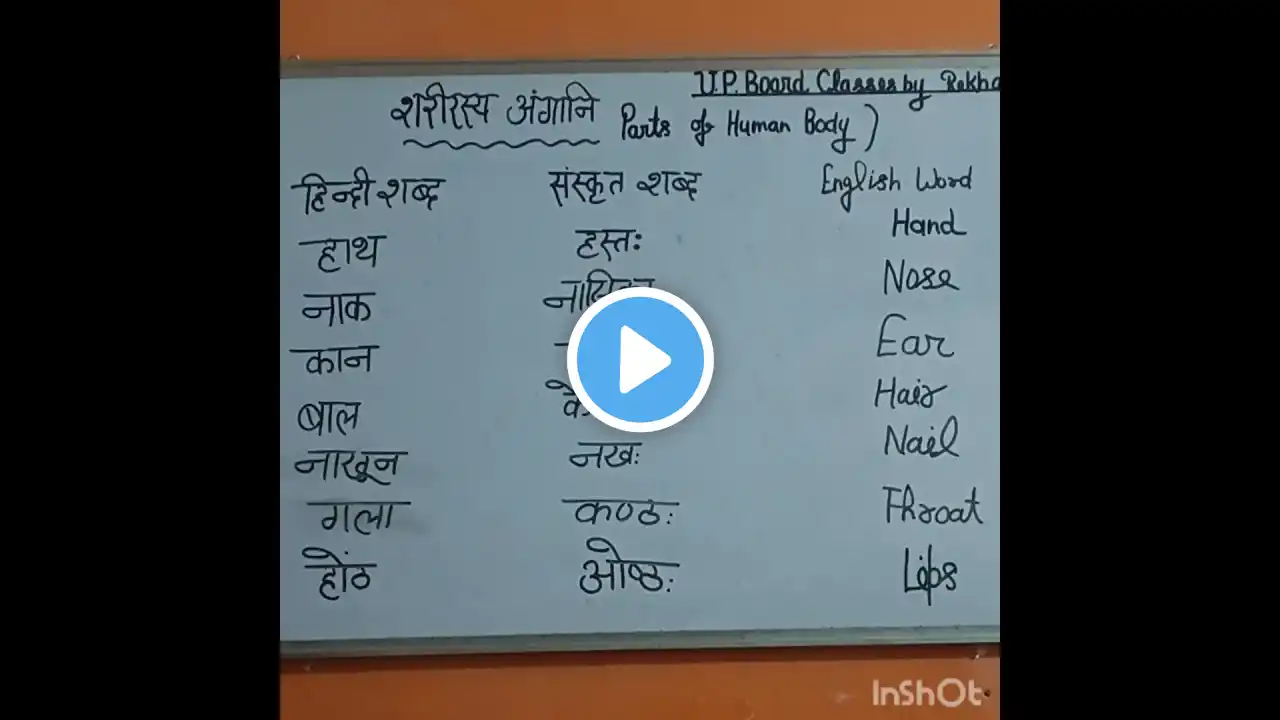 U.P. Board Classes by Rekha
शरीरस्य अंगानि Parts of Human Body)
हिन्दी शब्द संस्कृत शब्द English Word
हाथ हस्तः Hand
नाक Nose
कान Ear
बाल Hair
नाखून नखः Nail
गला कण्ठः Throat
होंठ ओष्ठः Lips
InShOt